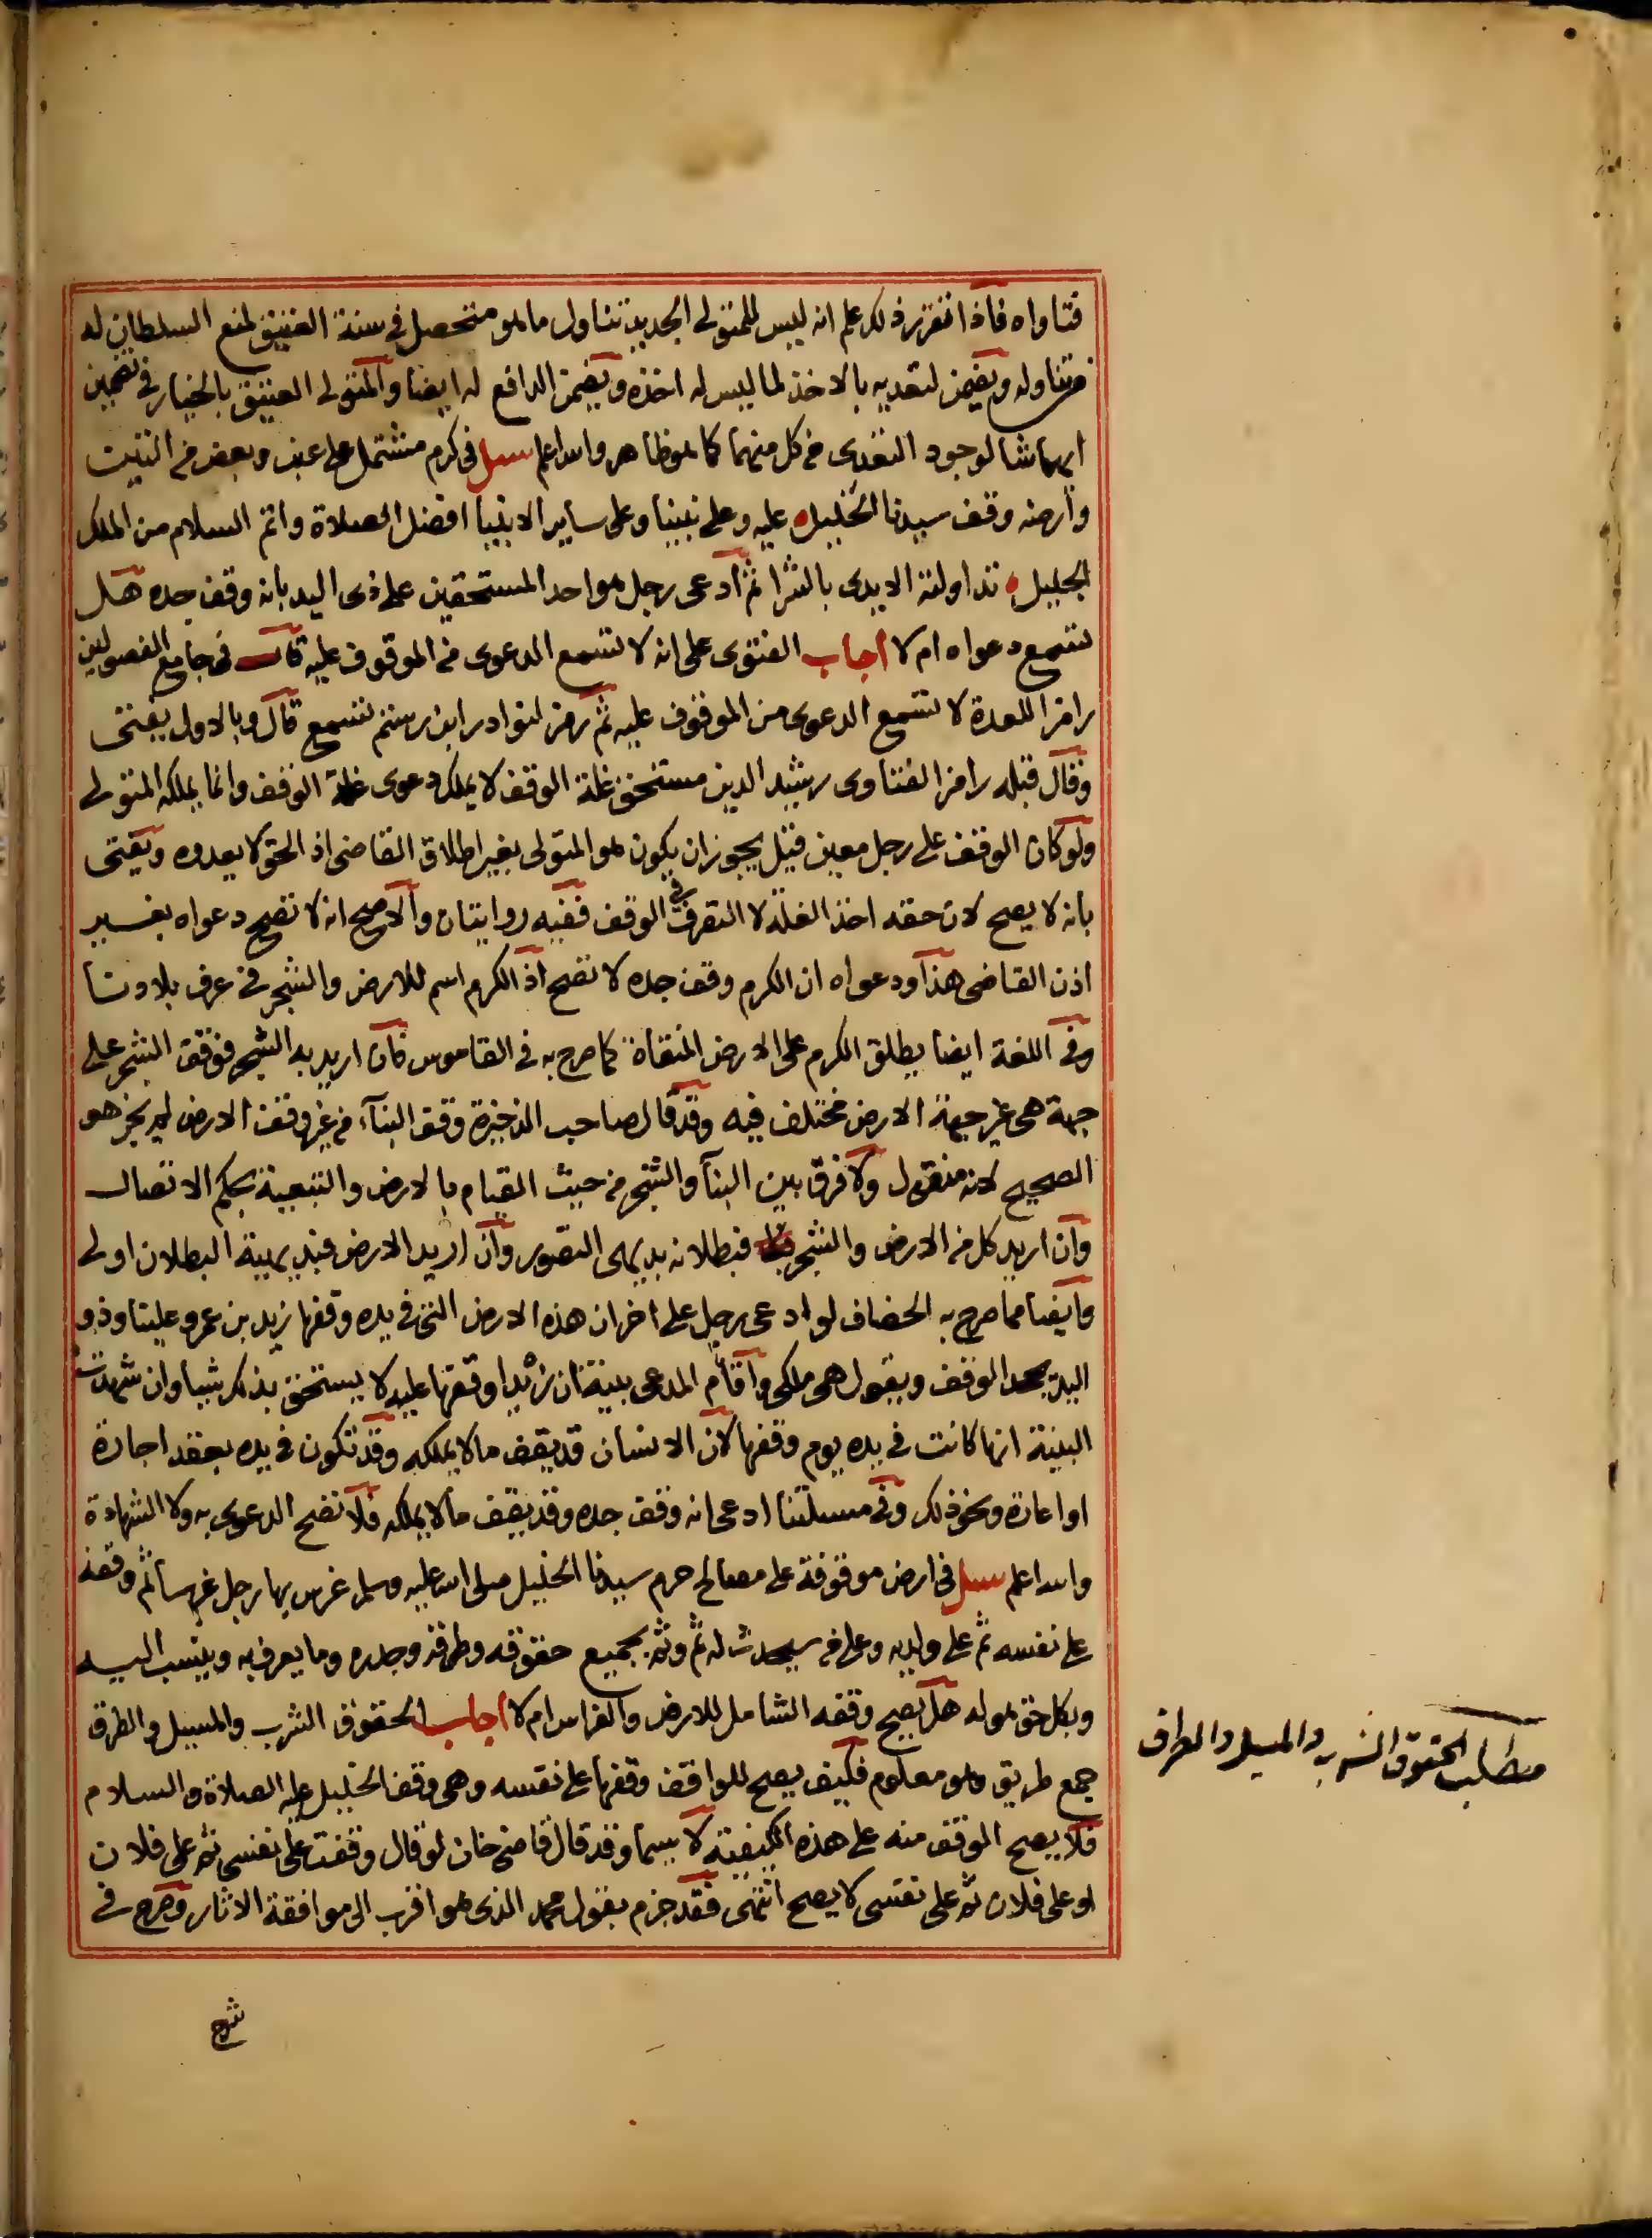 فتاواه فاذا تقرر ذلك علم انه ليس للمتولى الجديد تناول ما هو متحصل فى سنة العتيق لمنع السلطان له
من تناوله ويضمن لتعديه بالاخذ لما ليس له اخذه ويضمن الدافع له ايضا والمتولى العتيق بالخيار فى تضمين
ايهما شا لوجود التعدى من كل منهما كما هو ظاهر والله اعلم سىل فى كرم مشتمل على عنب وبعض من التين
وارضه وقف سيدنا الخليل عليه وعلى نبينا وعلى ساير الانبيا افضل الصلاة واتم السلام من الملك
الجليل تداولته الايدى بالشرا ثم ادعى رجل هو احد المستحقين على ذى اليد بانه وقف جده هل
تسمع دعواه ام لا اجاب الفتوى على انه لا تسمع الدعوى من الموقوف عليه قال فى جامع الفصولين
رامزا للعدة لا تسمع الدعوى من الموقوف عليه ثم رمز لنوادر ابن رستم تسمع قال وبالاول يفتى
وقال قبله رامزا لفتاوى رشيد الدين مستحق غلة الوقف لا يملك دعوى غلة الوقف وانما يملكه المتولى
ولو كان الوقف على رجل معين قيل يجوز ان يكون هو المتولى بغير اطلاق القاضى اذ الحق لا يعدوه ويفتى
بانه لا يصح لان حقه اخذ الغلة لا التصرف فى الوقف ففيه روايتان والاصح انه لا تصح دعواه بغير
اذن القاضى هذا ودعواه ان الكرم وقف جده لا تصح اذ الكرم اسم للارض والشجر فى عرف بلادنا
وفى اللغة ايضا يطلق الكرم على الارض المنقاة كما صرح به فى القاموس فان اريد به الشجر فوقف الشجر على
جهة هى غير جهة الارض مختلف فيه وقد قال صاحب الذخيرة وقف البنآء من غير وقف الارض لم يجز هو
الصحيح لانه منقول ولا فرق بين البنآ والشجر من حيث القيام بالارض والتبعية بحكم الاتصال
وان اريد كل من الارض والشجر فبطلانه بديهى التصور وان اريد الارض فبديهية البطلان اولى
وايضا مما صرح به الخصاف لو ادعى رجل على اخر ان هذه الارض التى فى يده وقفها زيد بن عمرو علينا وذو
اليد يجحد الوقف ويقول هى ملكى واقام المدعى بينة ان زيدا وقفها عليه لا يستحق بذلك شيا وان شهدت
البينة انها كانت فى يده يوم وقفها لان الانسان قد يقف ما لا يملكه وقد تكون فى يده بعقد اجارة
او اعارة ونحو ذلك وفى مسئلتنا ادعى انه وقف جده وقد يقف ما لا يملكه فلا تصح الدعوى به ولا الشهادة
والله اعلم سىل فى ارض موقوفة على مصالح حرم سيدنا الخليل صلى الله عليه وسلم غرس بها رجل غرسا ثم وقفه
على نفسه ثم على ولديه وعلى من سيحدث له ثم وثم بجميع حقوقه وطرقه وجدره وما يعرف به وينسب اليه
وبكل حق هو له هل يصح وقفه الشامل للارض والغراس ام لا اجاب الحقوق الشرب والمسيل والطرق
جمع طريق وهو معلوم فكيف يصح للواقف وقفها على نفسه وهى وقف الخليل عليه الصلاة والسلام
فلا يصح الوقف منه على هذه الكيفية لا سيما وقد قال قاضى خان لو قال وقفت على نفسى ثم على فلان
او على فلان ثم على نفسى لا يصح انتهى فقد جزم بقول محمد الذى هو اقرب الى موافقة الاثار وصرح فى
شرح
مطلب الحقوق الشرب والمسيل والطرق